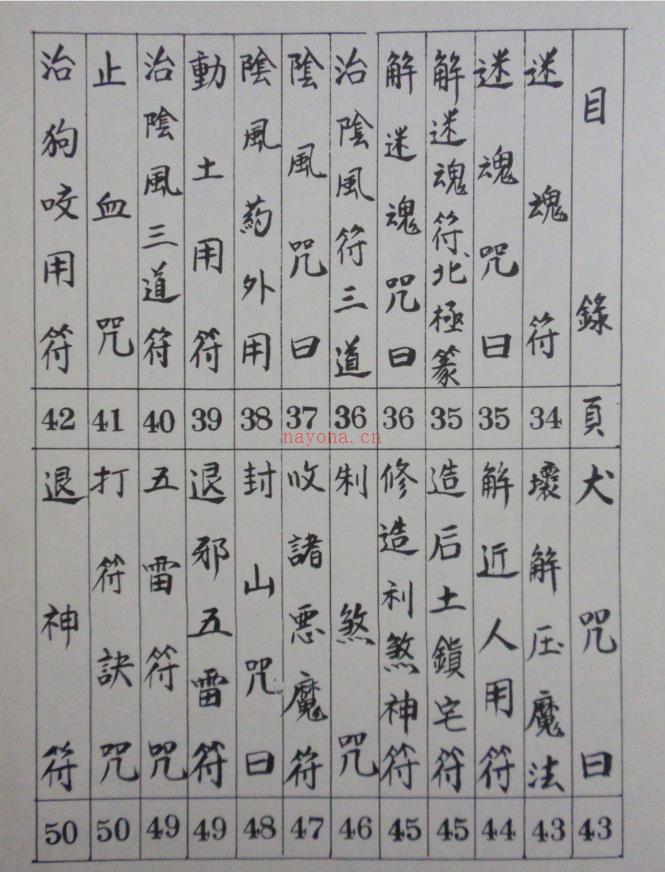 目錄 頁
迷魂符 34
迷魂咒曰 35
解迷魂符北極篆 35
解迷魂咒曰 36
治陰風符三道 36
陰風咒曰 37
陰風药外用 38
動土用符 39
治陰風三道符 40
止血咒 41
治狗咬用符 42
犬咒曰 43
壞解压魔法 43
解近人用符 44
造后土鎖宅符 45
修造利煞神符 45
制煞咒 46
收諸悪魔符 47
封山咒曰 48
退邪五雷符 49
五雷符咒 49
打符訣咒 50
退神符 50
nayona.cn